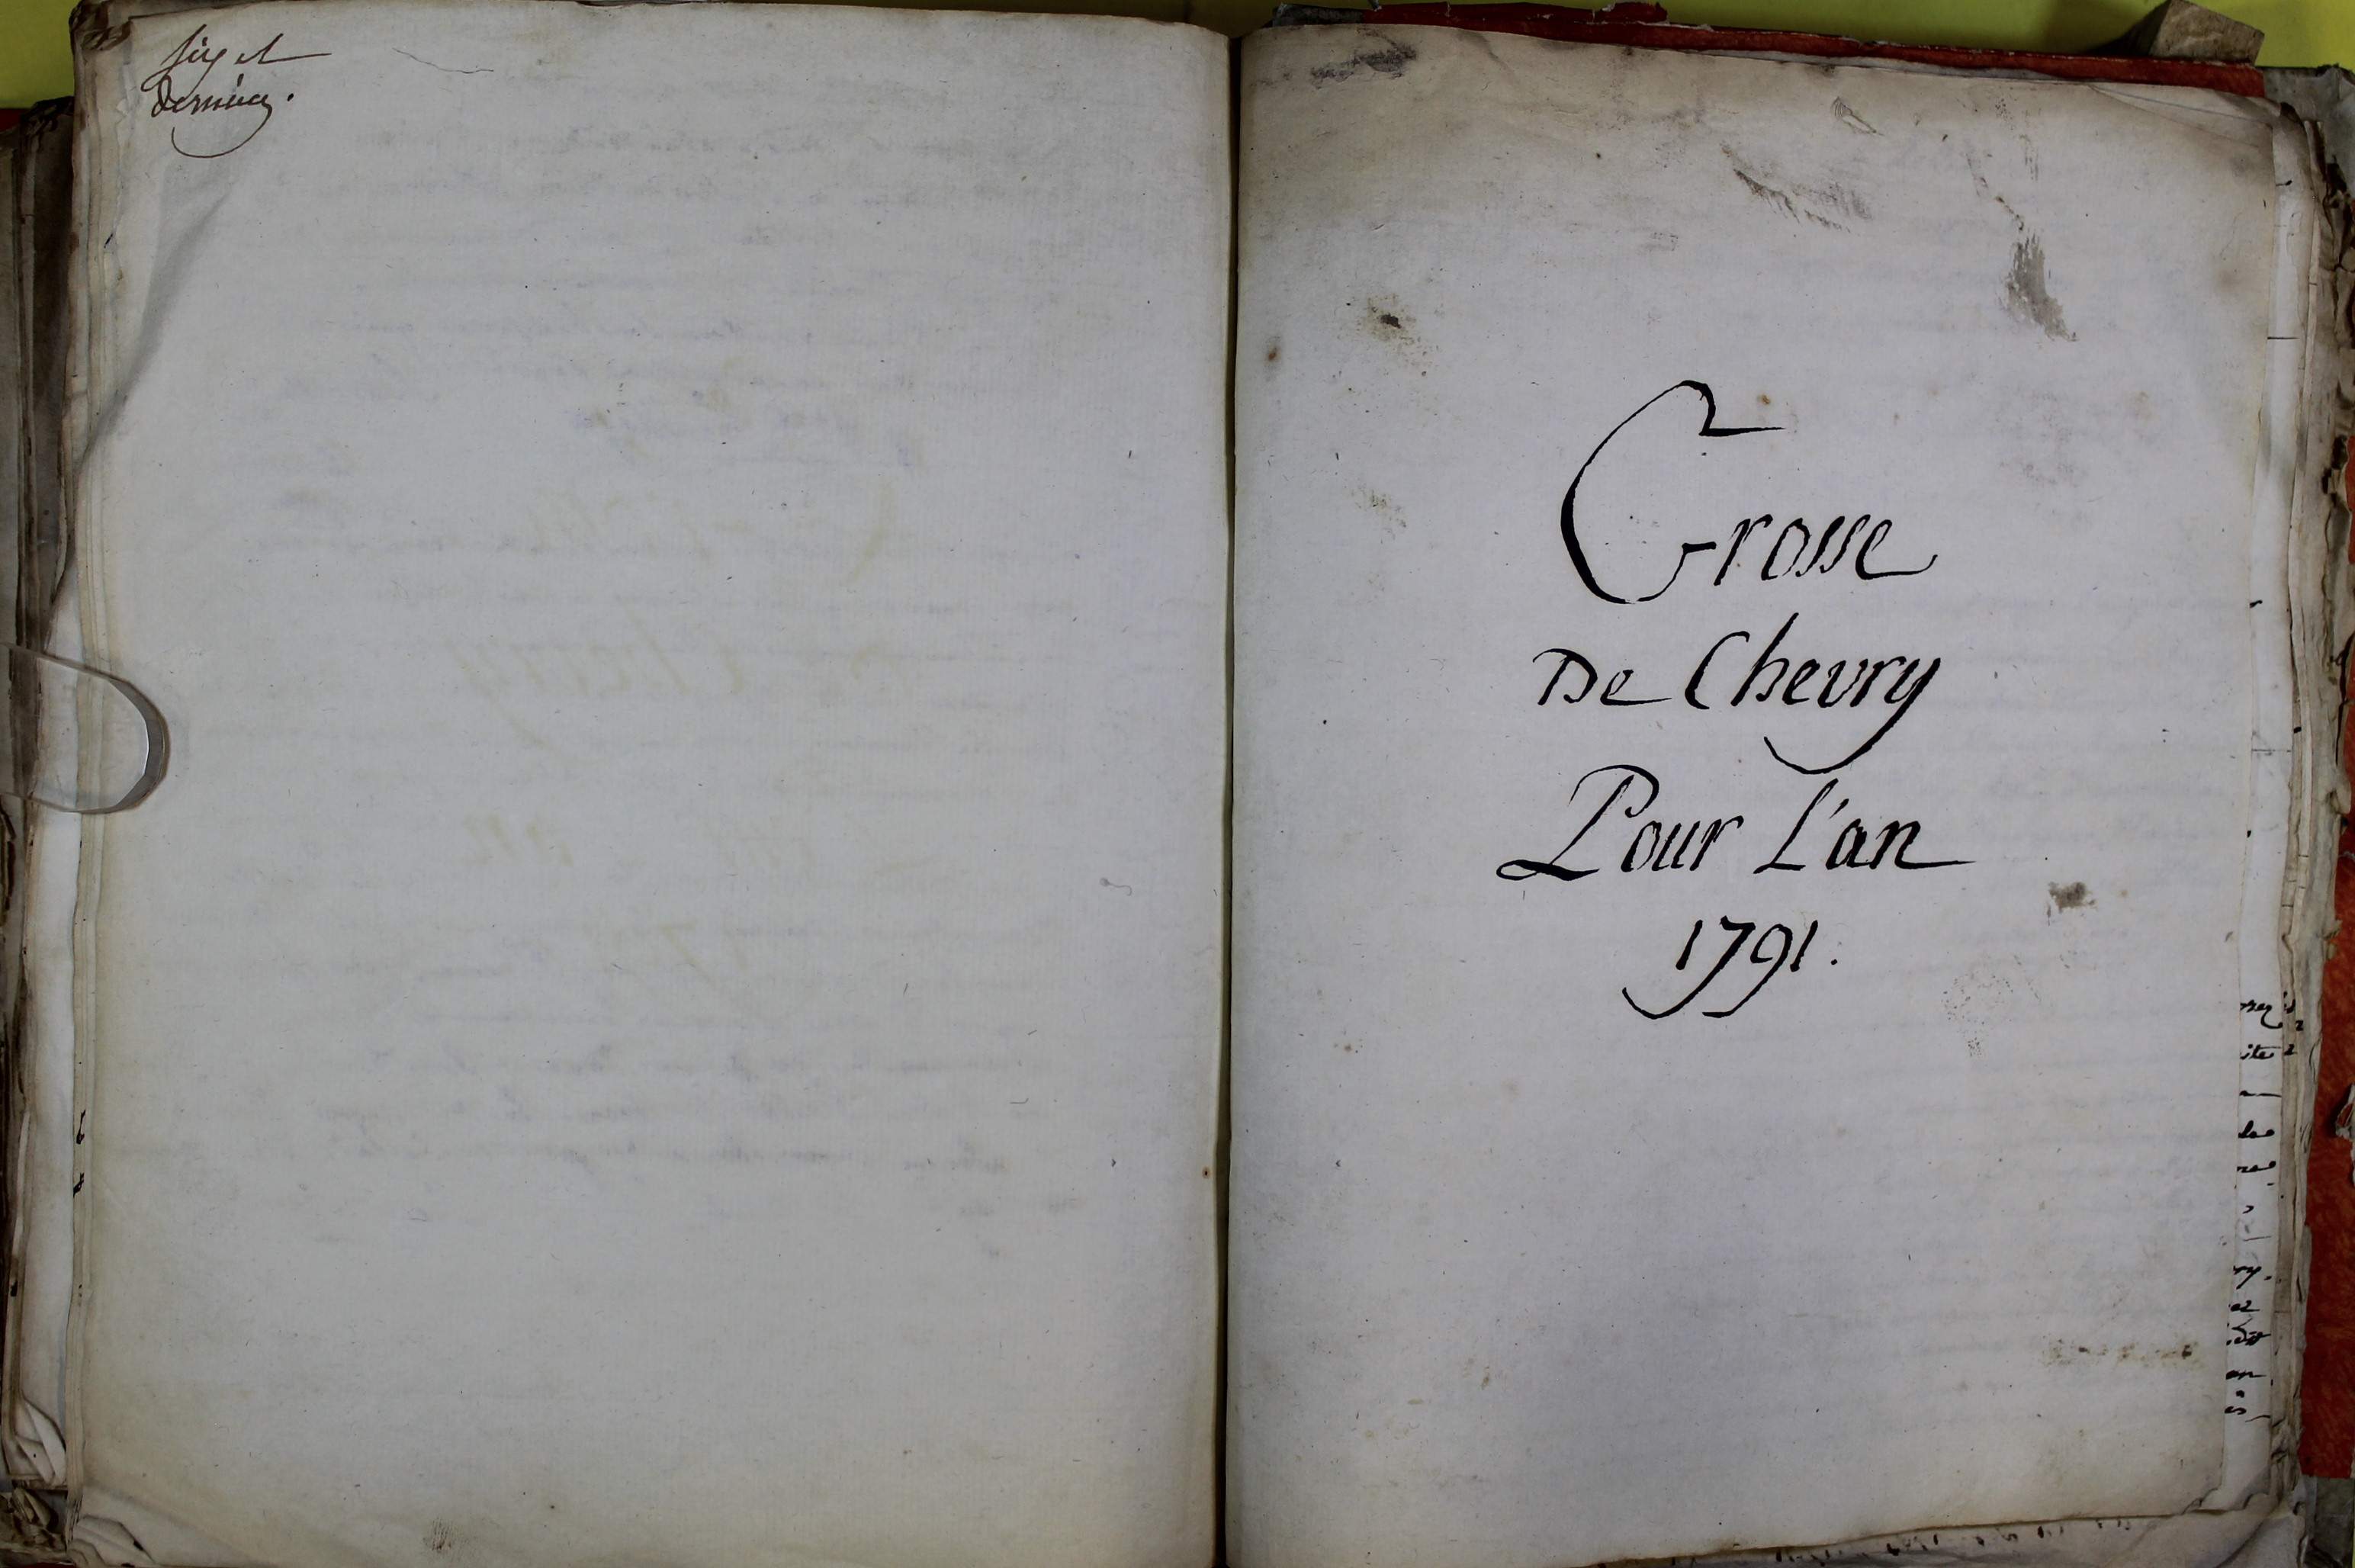 six et
dernier.
Grosse
De Chevry
Pour L'an
1791.